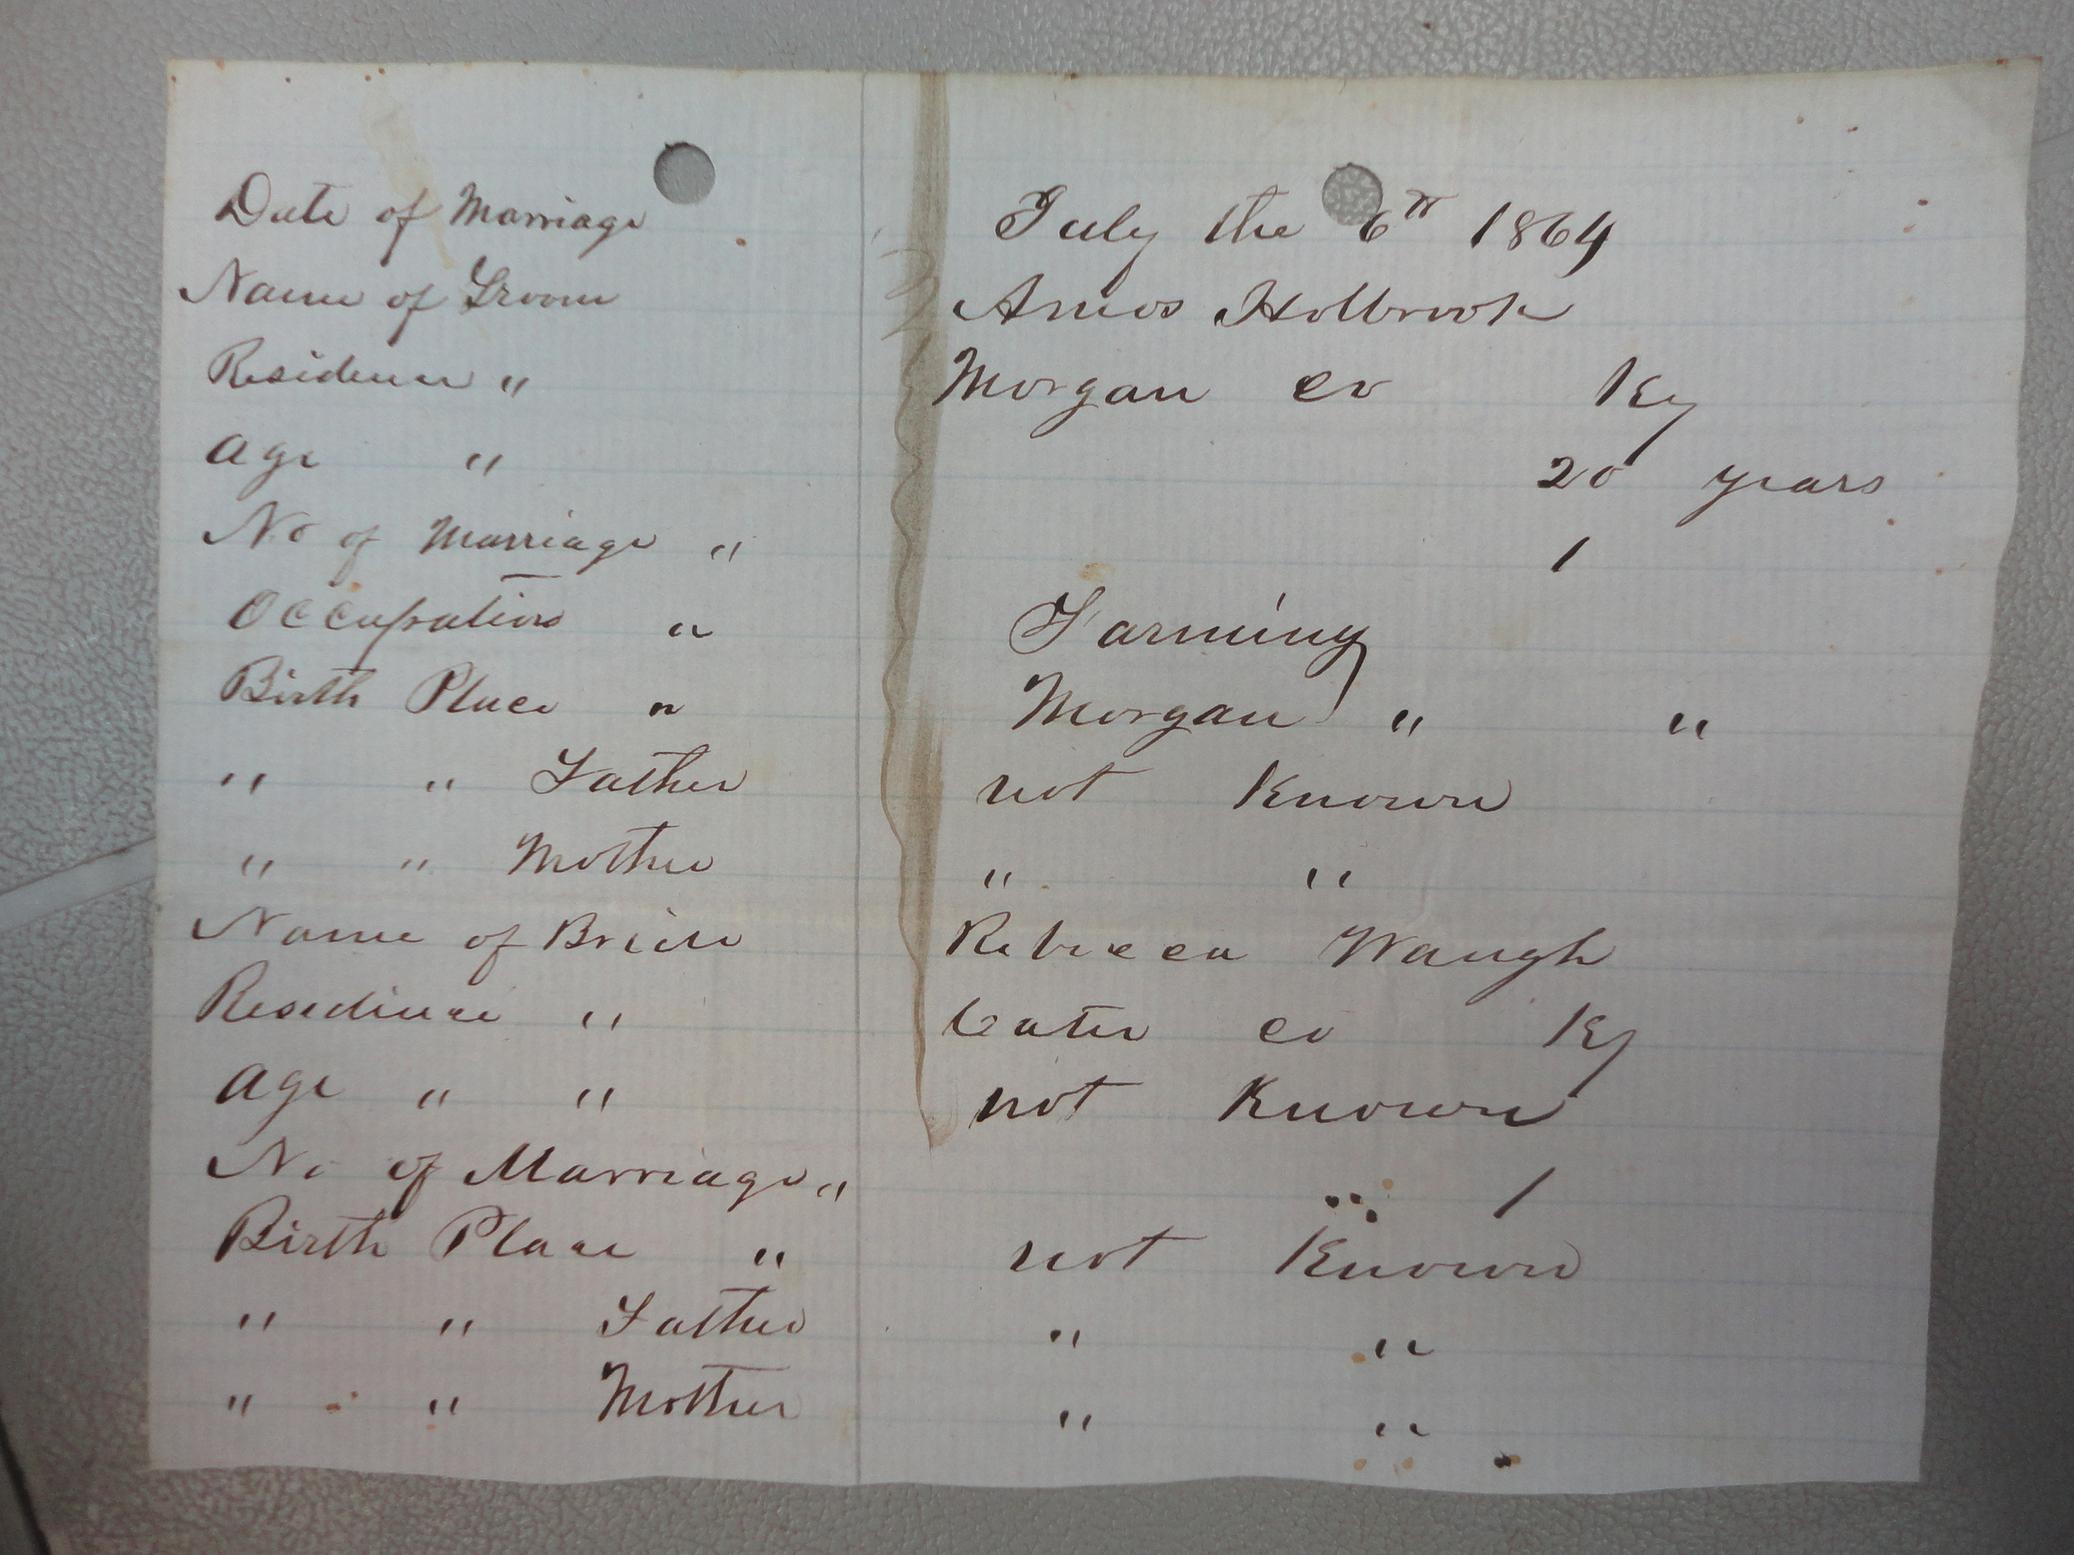 Date of Marriage July the 6th 1864
Name of Groom Amos Holbrook
Residence " Morgan co Ky
Age " 20 years
No of Marriage " 1
Occupation " Farming
Birth Place " Morgan " "
" " Father not Known
" " Mother " "
Name of Bride Rebecca Waugh
Residence " Carter co Ky
Age " " not Known
No of Marriage " 1
Birth Place " not Known
" " Father " "
" " Mother " "